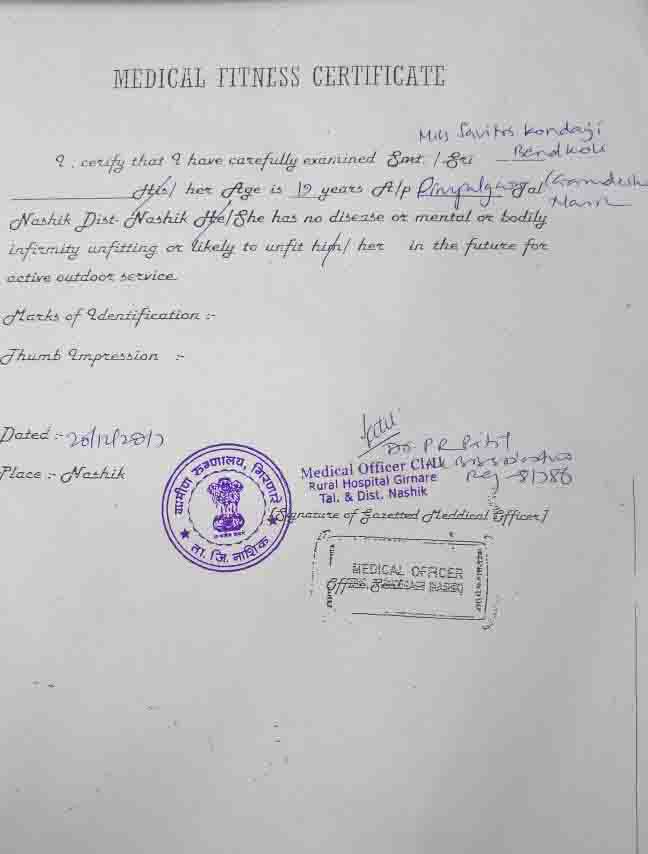 MEDICAL FITNESS CERTIFICATE
Miss Kondaji
I, cerify that I have carefully examined Smt. / Sri Bendkoli
His/ her Age is 19 years A/p Tal
Nashik Dist- Nashik He/She has no disease or mental or bodily
infirmity unfitting or likely to unfit him/ her in the future for
active outdoor service
Marks of Identification :-
Thumb Impression :-
Dated :- 20/12/2017
Place :- Nashik
ग्रामीण रुग्णालय, गिरणारे
ता. जि. नाशिक
Dr P R Patil
Medical Officer Cl
Rural Hospital Girnare
Tal. & Dist. Nashik
Reg
[Signature of Gazetted Meddical Officer]
MEDICAL OFFICER
Office